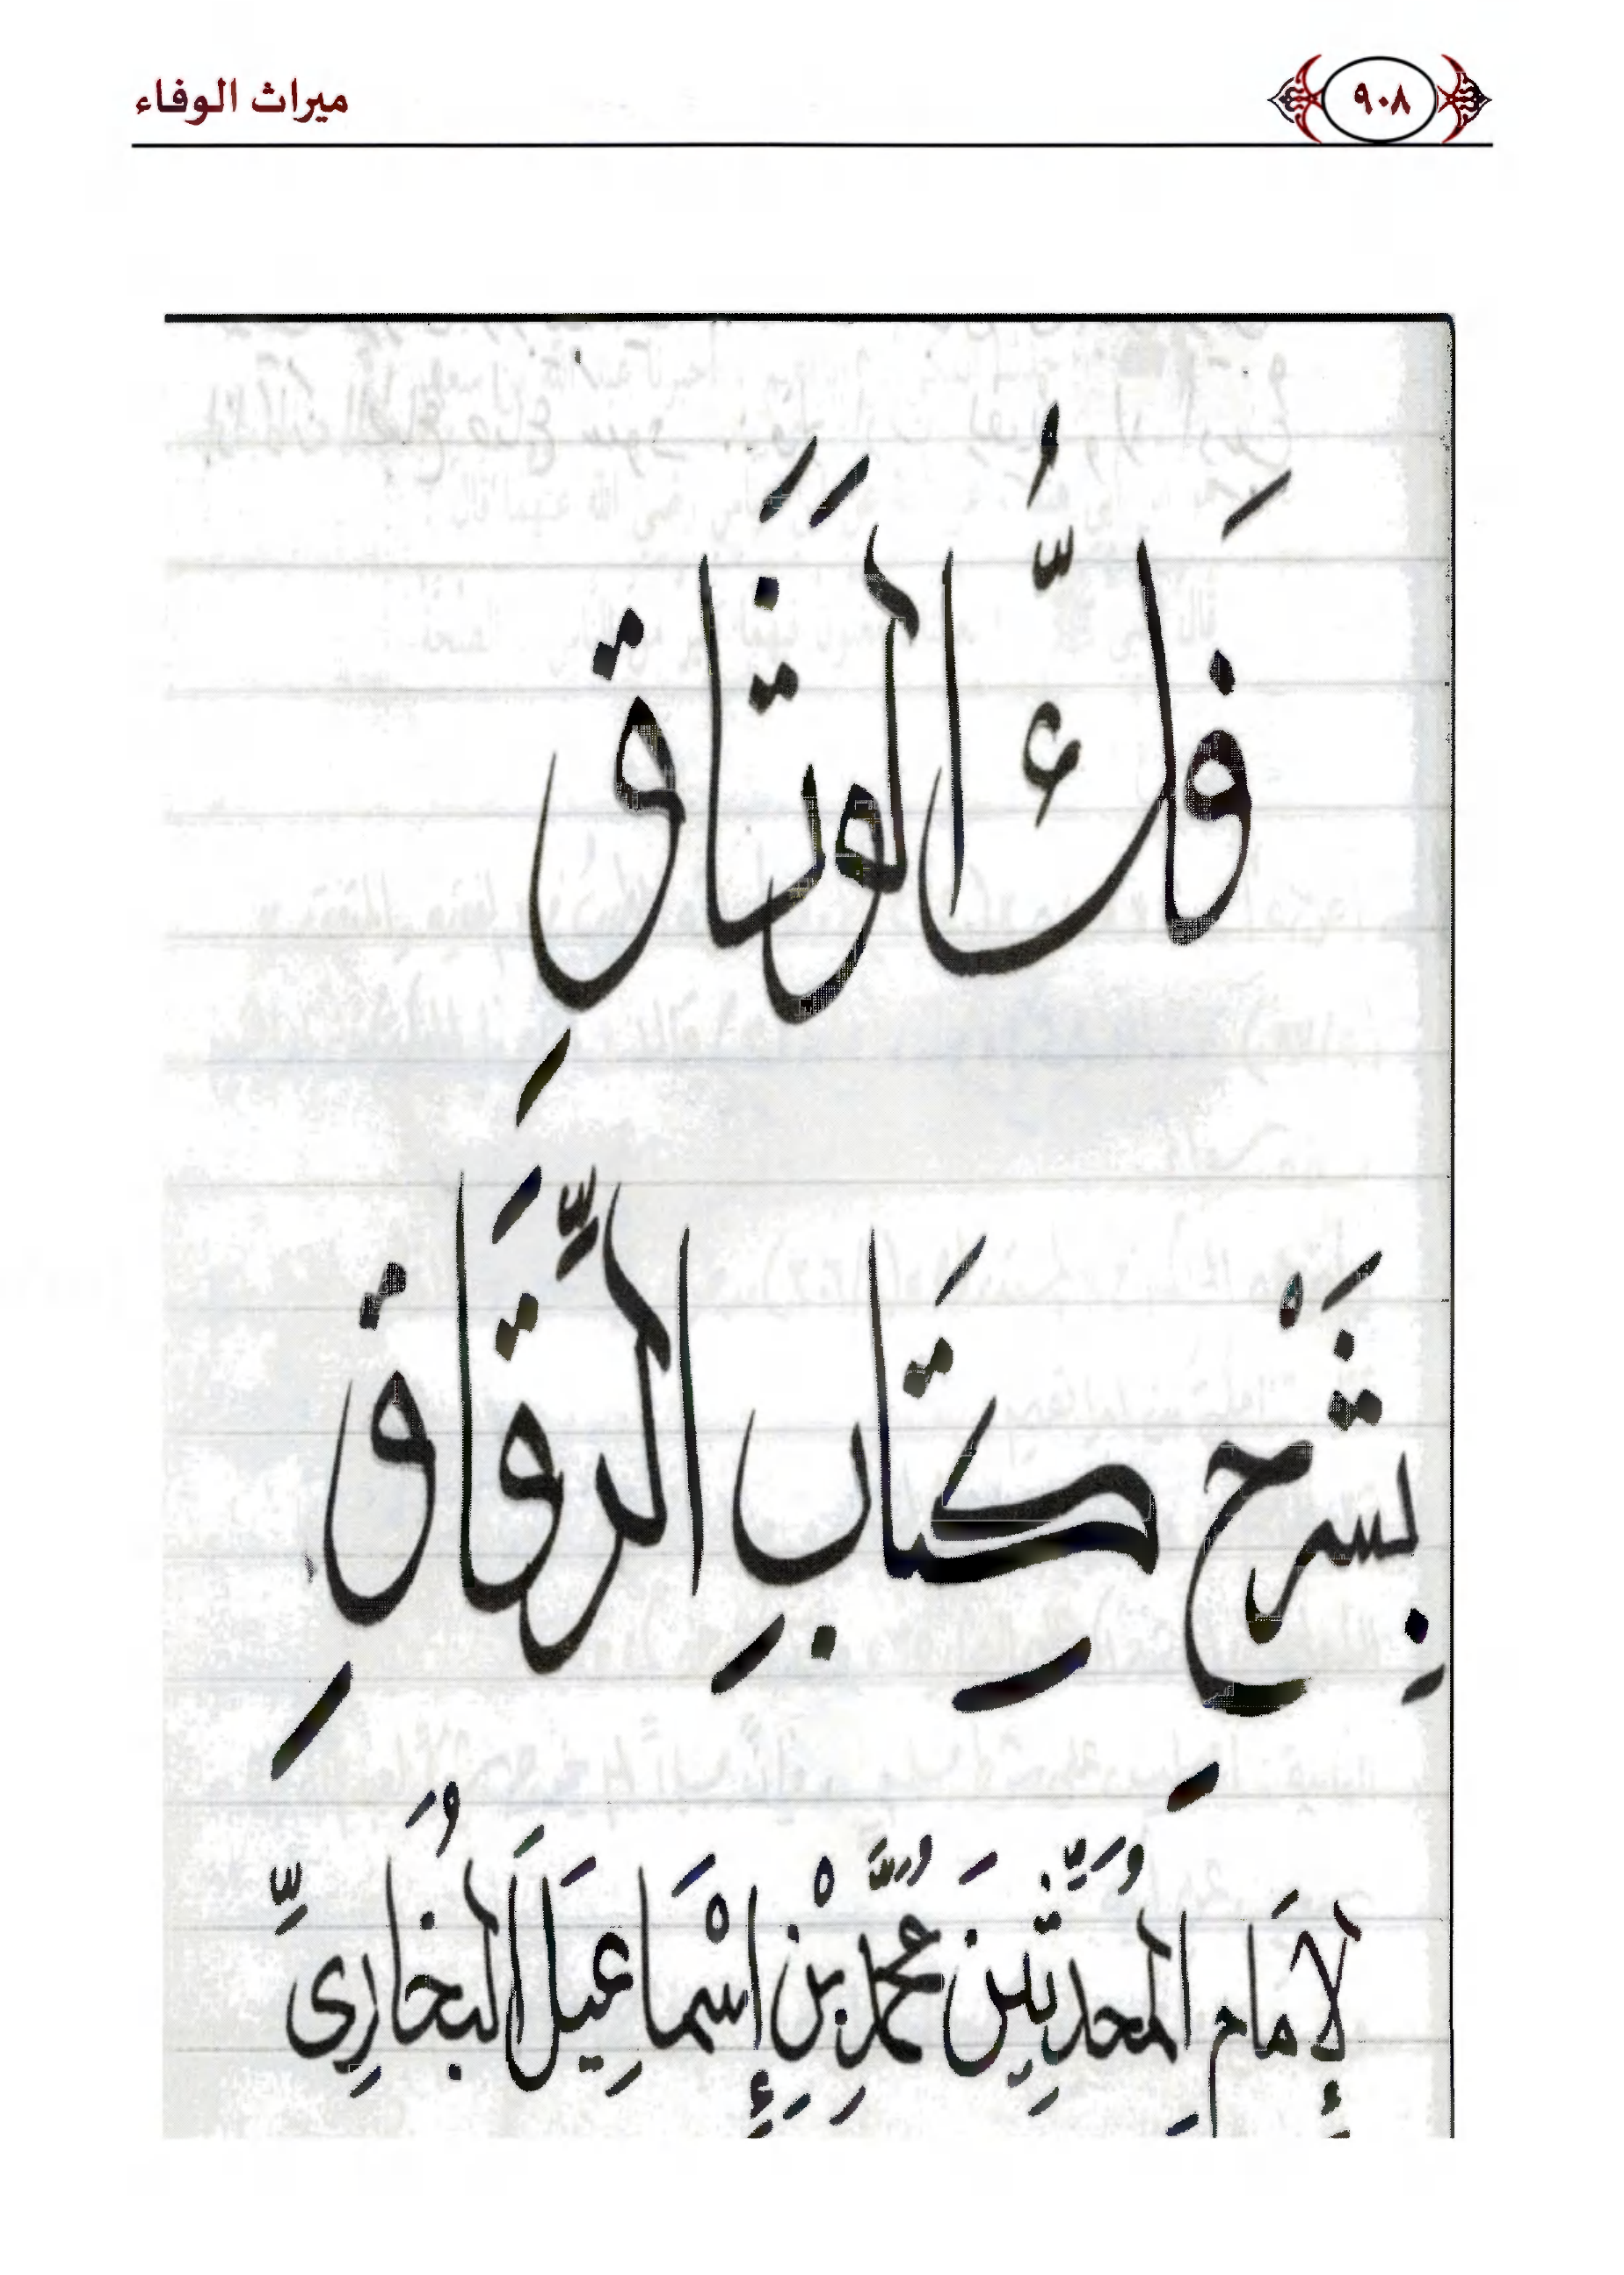 ميراث الوفاء
٩٠٨
فَكُّ الْوَثَاقِ
بِشَرْحِ كِتَابِ الرِّقَاقِ
لإِمَامِ المُحَدِّثِينَ مُحَمَّدِ بْنِ إِسْمَاعِيلَ البُخَارِيِّ